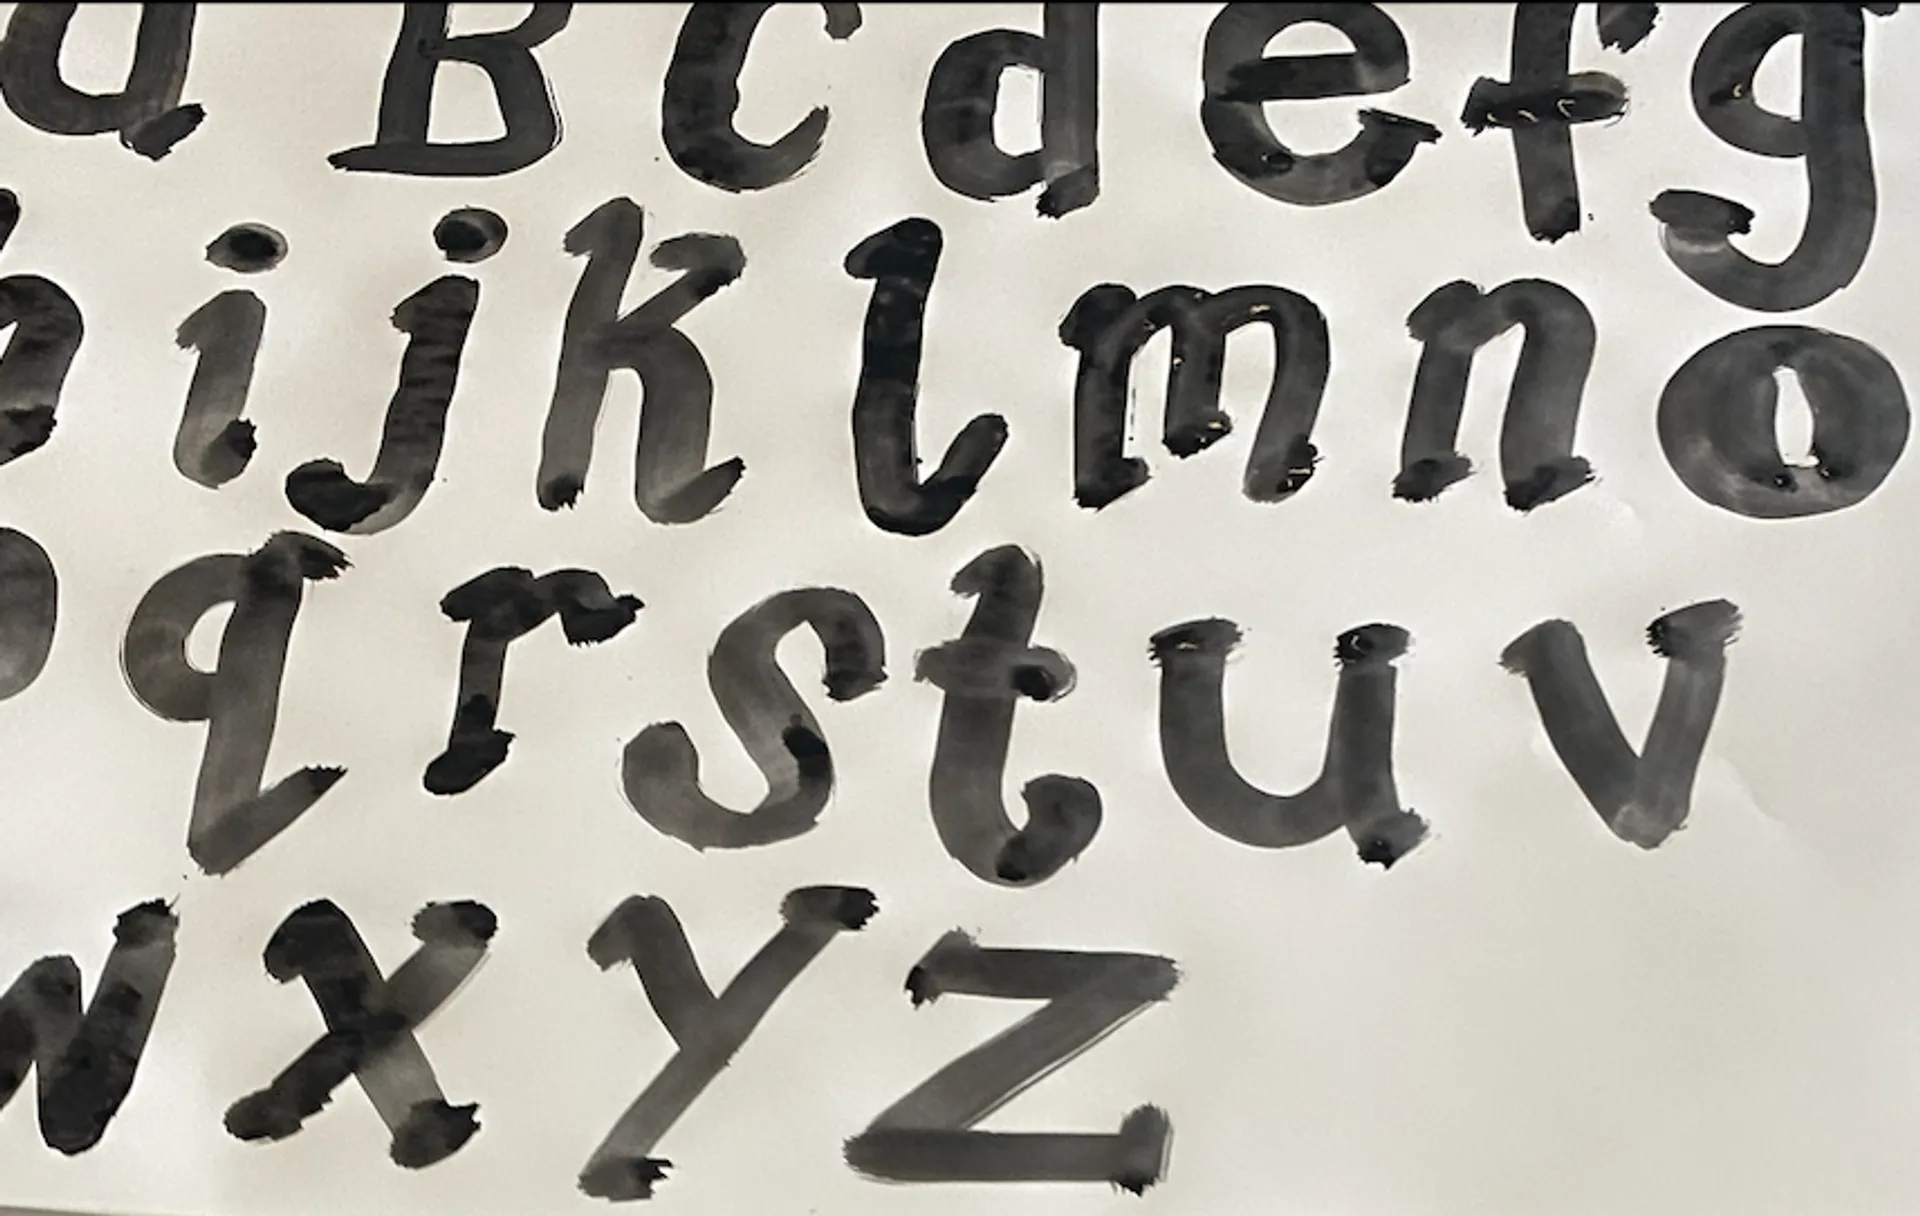 a B c d e f g
h i j k l m n o
p q r s t u v
w x y z